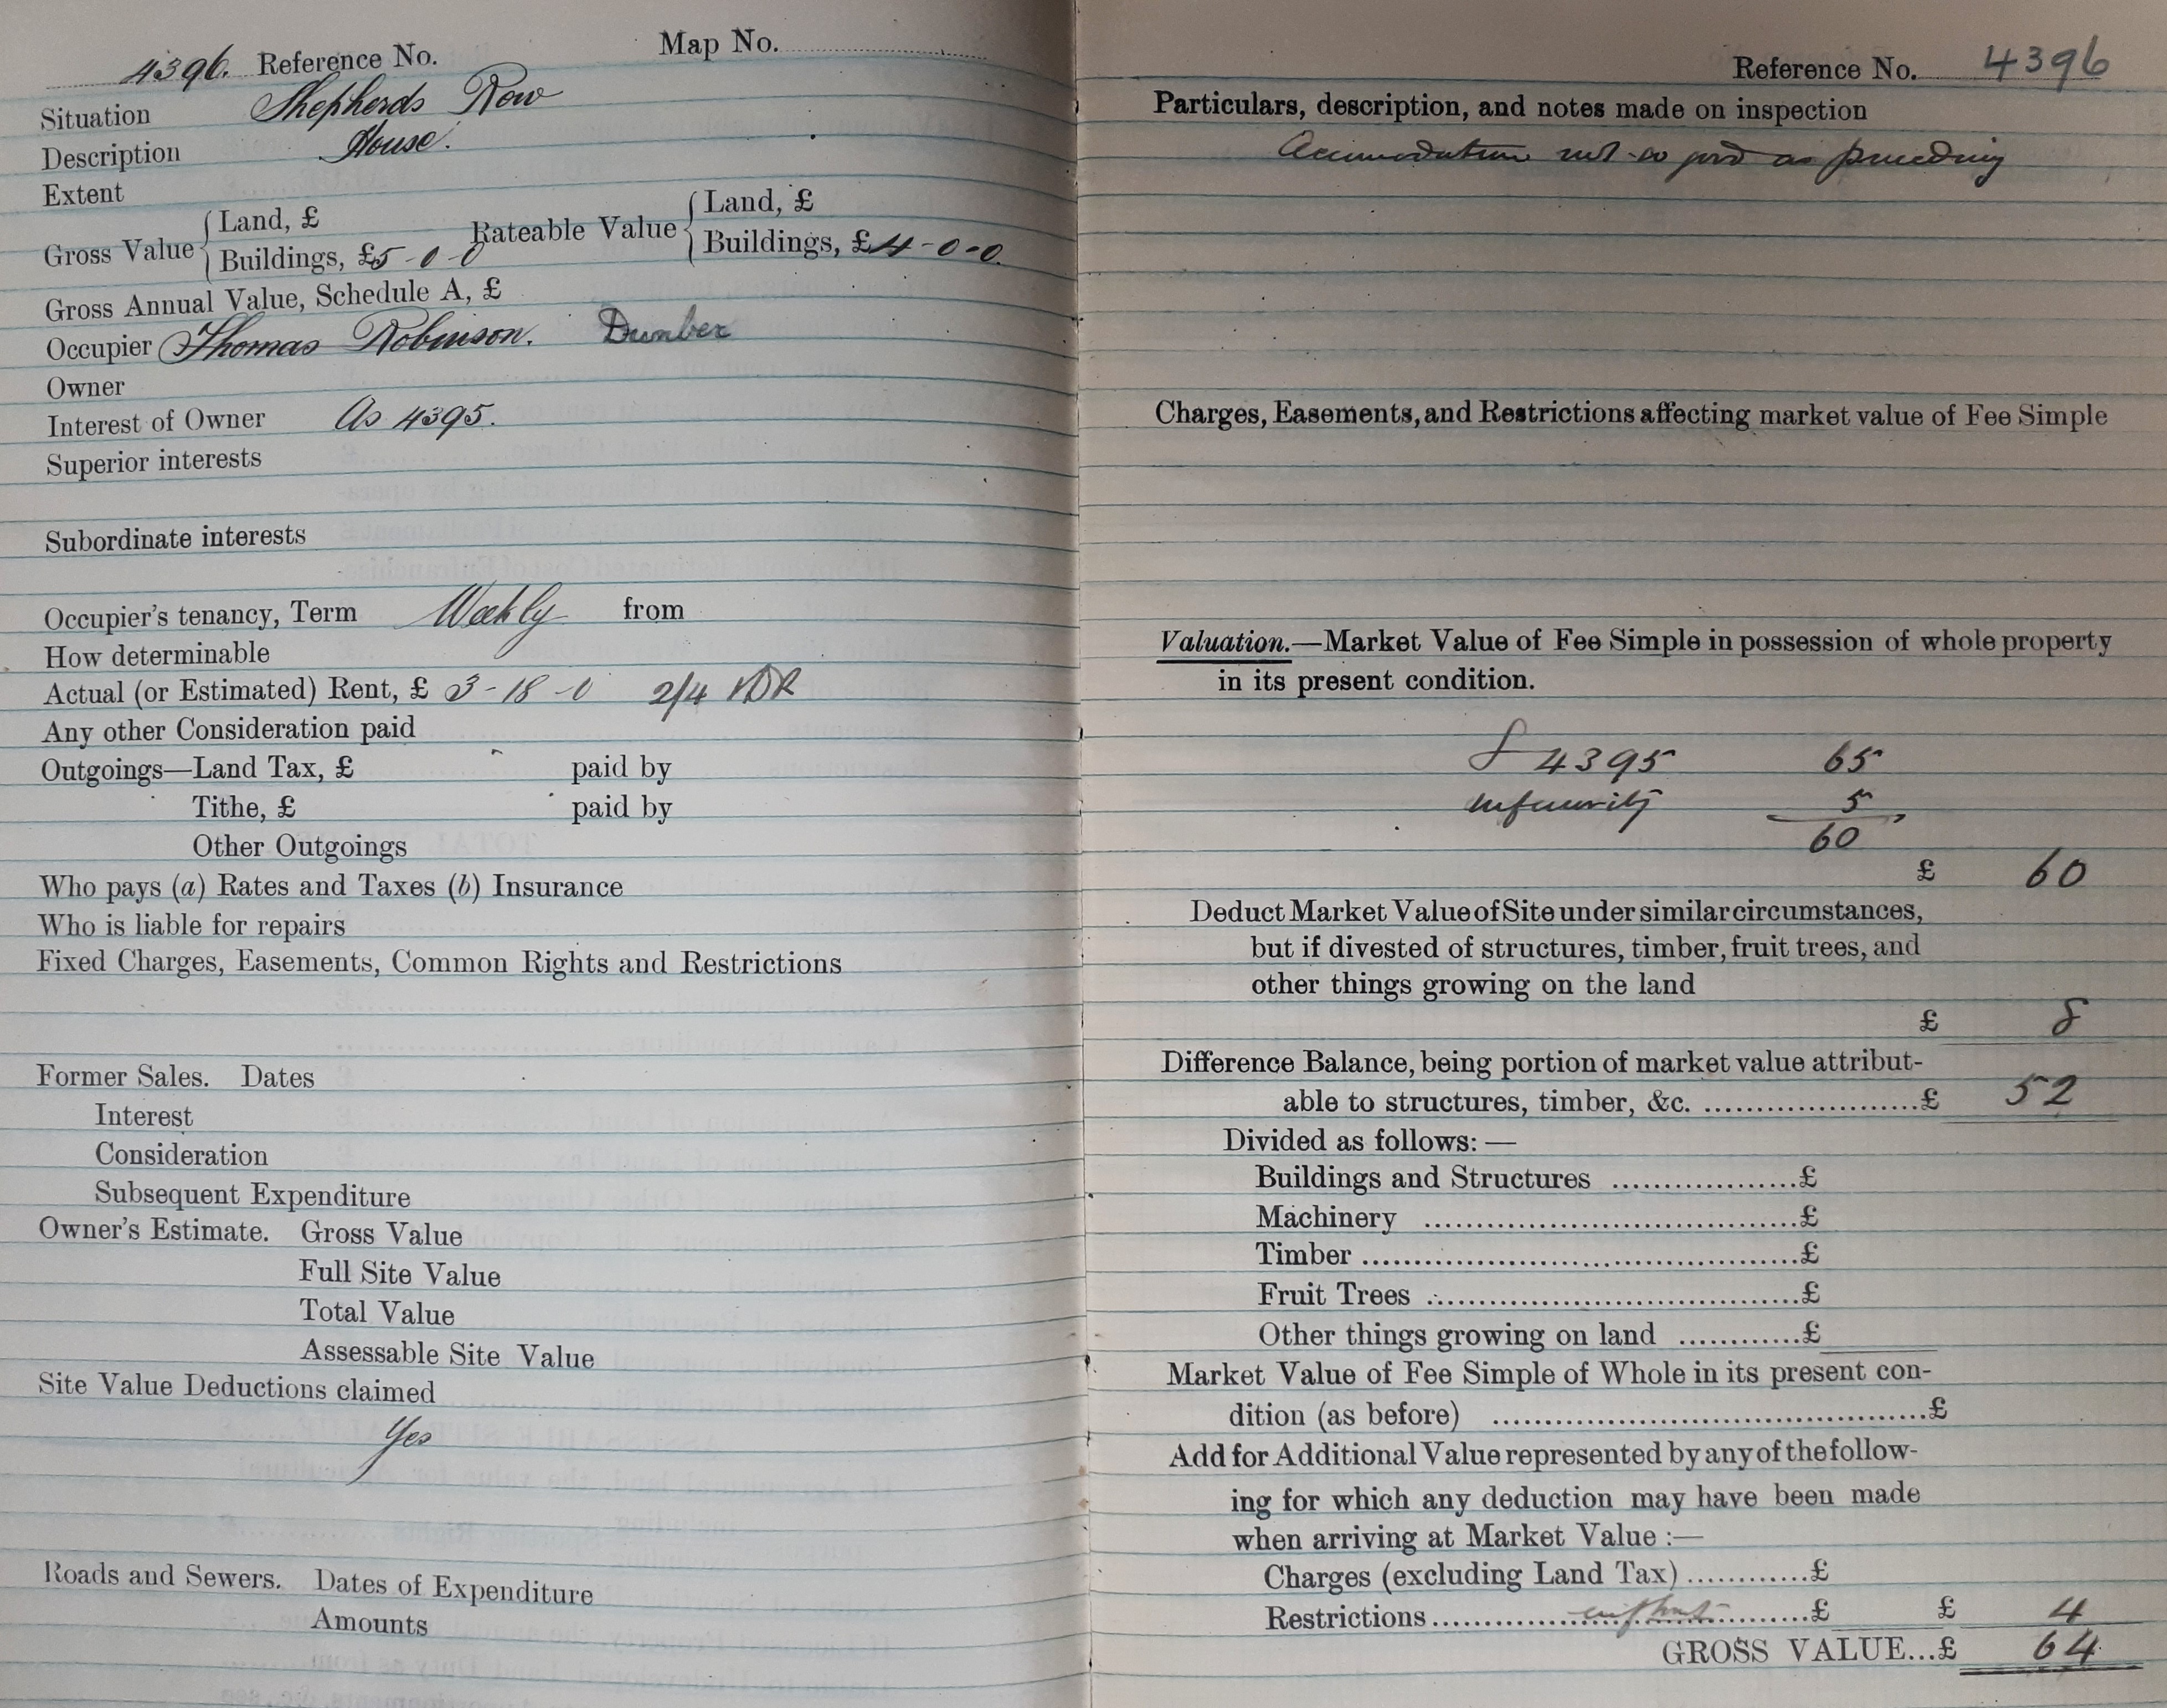 4396. Reference No. Map No.
Situation Shepherds Row
Description House.
Extent
Gross Value { Land, £
Buildings, £5-0-0
Rateable Value { Land, £
Buildings, £4-0-0.
Gross Annual Value, Schedule A, £
Occupier Thomas Robinson. Dumber
Owner
Interest of Owner As 4395.
Superior interests
Subordinate interests
Occupier's tenancy, Term Weekly from
How determinable
Actual (or Estimated) Rent, £ 3-18-0 2/4
Any other Consideration paid
Outgoings—Land Tax, £ paid by
Tithe, £ paid by
Other Outgoings
Who pays (a) Rates and Taxes (b) Insurance
Who is liable for repairs
Fixed Charges, Easements, Common Rights and Restrictions
Former Sales. Dates
Interest
Consideration
Subsequent Expenditure
Owner's Estimate. Gross Value
Full Site Value
Total Value
Assessable Site Value
Site Value Deductions claimed
Yes
Roads and Sewers. Dates of Expenditure
Amounts
Reference No. 4396
Particulars, description, and notes made on inspection
Accomodation not so good as preceding
Charges, Easements, and Restrictions affecting market value of Fee Simple
Valuation.—Market Value of Fee Simple in possession of whole property
in its present condition.
4395 65
inferiority 5
60
£ 60
Deduct Market Value of Site under similar circumstances,
but if divested of structures, timber, fruit trees, and
other things growing on the land
£ 8
Difference Balance, being portion of market value attribut-
able to structures, timber, &c. £ 52
Divided as follows:—
Buildings and Structures £
Machinery £
Timber £
Fruit Trees £
Other things growing on land £
Market Value of Fee Simple of Whole in its present con-
dition (as before) £
Add for Additional Value represented by any of the follow-
ing for which any deduction may have been made
when arriving at Market Value :—
Charges (excluding Land Tax) £
Restrictions £ £ 4
GROSS VALUE...£ 64